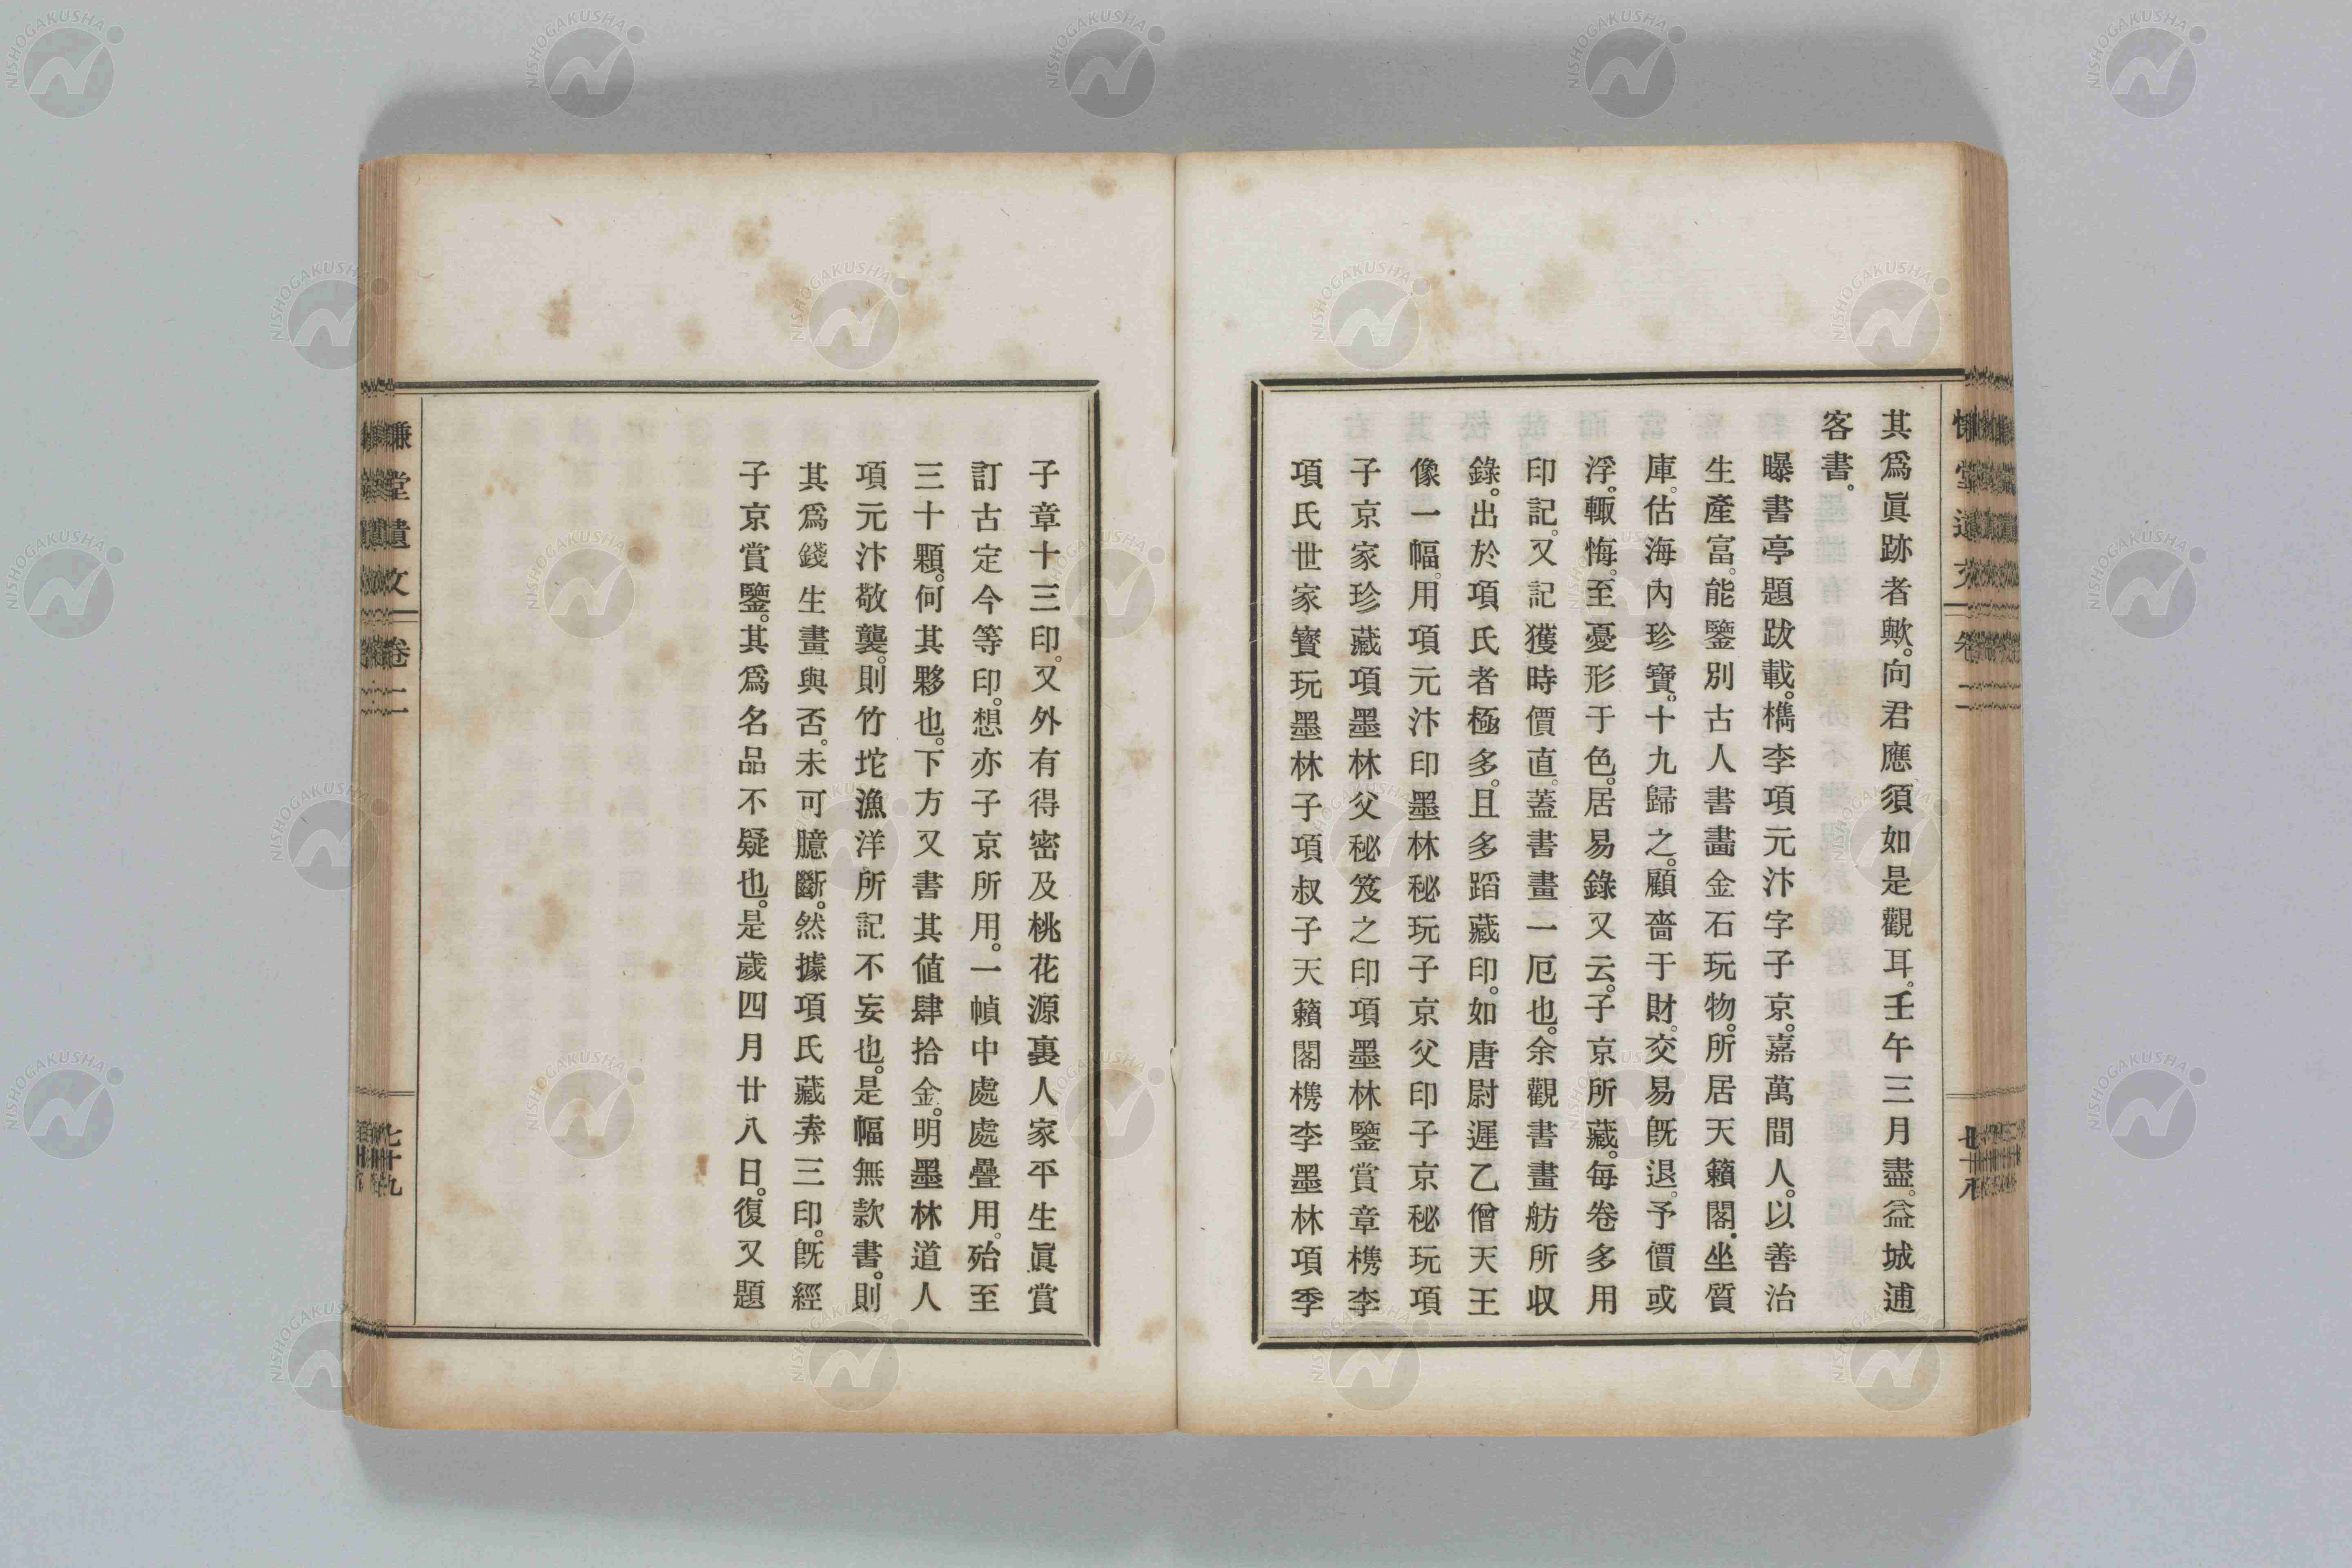 慊堂遺文 卷二 七十八
其爲眞跡者歟。向君應須如是觀耳。壬午三月盡。益城逋
客書。
曝書亭題跋載。檇李項元汴字子京。嘉萬間人。以善治
生產富。能鑒別古人書畵金石玩物。所居天籟閣。坐質
庫。估海內珍寶。十九歸之。顧嗇于財。交易既退。予價或
浮。輙悔。至憂形于色。居易錄又云。子京所藏。每卷多用
印記。又記獲時價直。蓋書畫之一厄也。余觀書畫舫所収
錄。出於項氏者極多。且多蹈藏印。如唐尉遲乙僧天王
像一幅。用項元汴印墨林秘玩子京父印子京秘玩項
子京家珍藏項墨林父秘笈之印項墨林鑒賞章檇李
項氏世家寶玩墨林子項叔子天籟閣檇李墨林項季
子章十三印。又外有得密及桃花源裏人家平生眞賞
訂古定今等印。想亦子京所用。一幀中處處疊用。殆至
三十顆。何其夥也。下方又書其値肆拾金。明墨林道人
項元汴敬襲。則竹坨漁洋所記不妄也。是幅無款書。則
其爲錢生畫與否。未可臆斷。然據項氏藏弆三印。既經
子京賞鑒。其爲名品不疑也。是歲四月廿八日。復又題
慊堂遺文 卷二 七十九
NISHOGAKUSHA